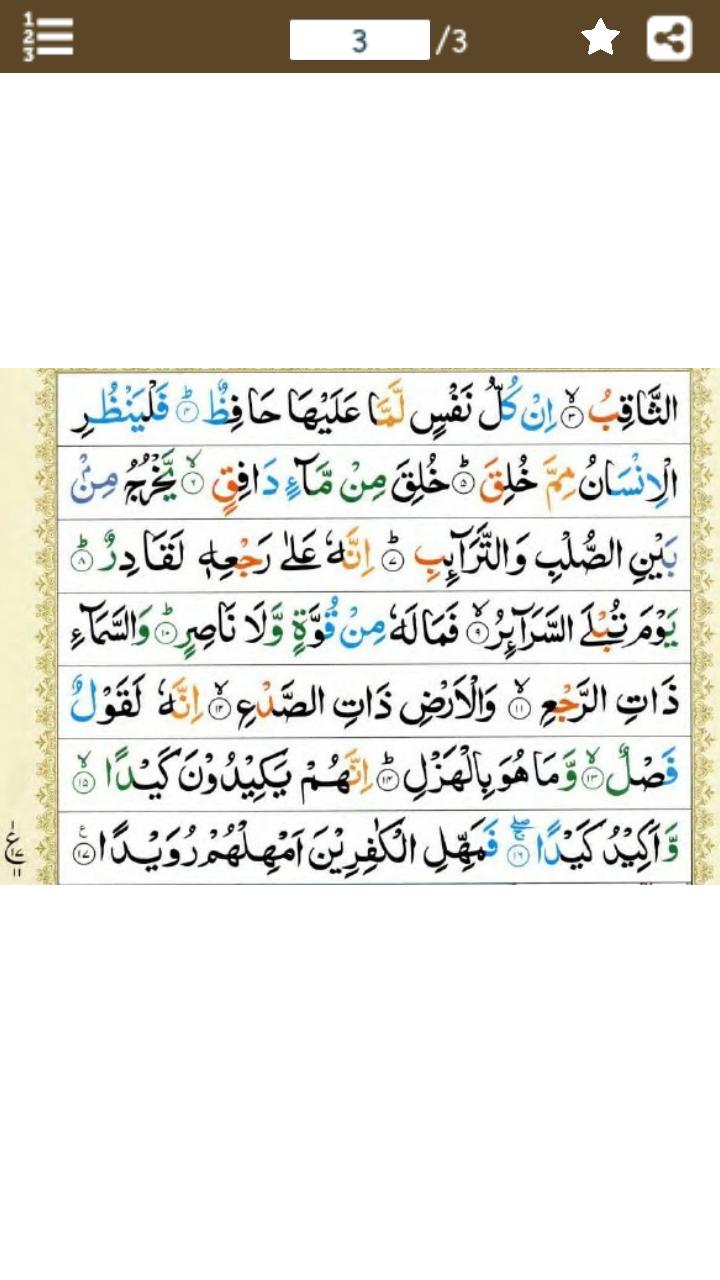 3 /3
الثَّاقِبُ ۙ﴿۳﴾ اِنْ كُلُّ نَفْسٍ لَّمَّا عَلَيْهَا حَافِظٌ ؕ﴿۴﴾ فَلْيَنْظُرِ
الْاِنْسَانُ مِمَّ خُلِقَ ؕ﴿۵﴾ خُلِقَ مِنْ مَّآءٍ دَافِقٍ ۙ﴿۶﴾ يَّخْرُجُ مِنْۢ
بَيْنِ الصُّلْبِ وَالتَّرَآئِبِ ؕ﴿۷﴾ اِنَّهٗ عَلٰى رَجْعِهٖ لَقَادِرٌ ؕ﴿۸﴾
يَوْمَ تُبْلَى السَّرَآئِرُ ۙ﴿۹﴾ فَمَا لَهٗ مِنْ قُوَّةٍ وَّلَا نَاصِرٍ ؕ﴿۱۰﴾ وَالسَّمَآءِ
ذَاتِ الرَّجْعِ ۙ﴿۱۱﴾ وَالْاَرْضِ ذَاتِ الصَّدْعِ ۙ﴿۱۲﴾ اِنَّهٗ لَقَوْلٌ
فَصْلٌ ۙ﴿۱۳﴾ وَّمَا هُوَ بِالْهَزْلِ ؕ﴿۱۴﴾ اِنَّهُمْ يَكِيْدُوْنَ كَيْدًا ۙ﴿۱۵﴾
وَّاَكِيْدُ كَيْدًا ۖۚ﴿۱۶﴾ فَمَهِّلِ الْكٰفِرِيْنَ اَمْهِلْهُمْ رُوَيْدًا ﴿۱۷﴾
۱
ع
۱۷
۱۱